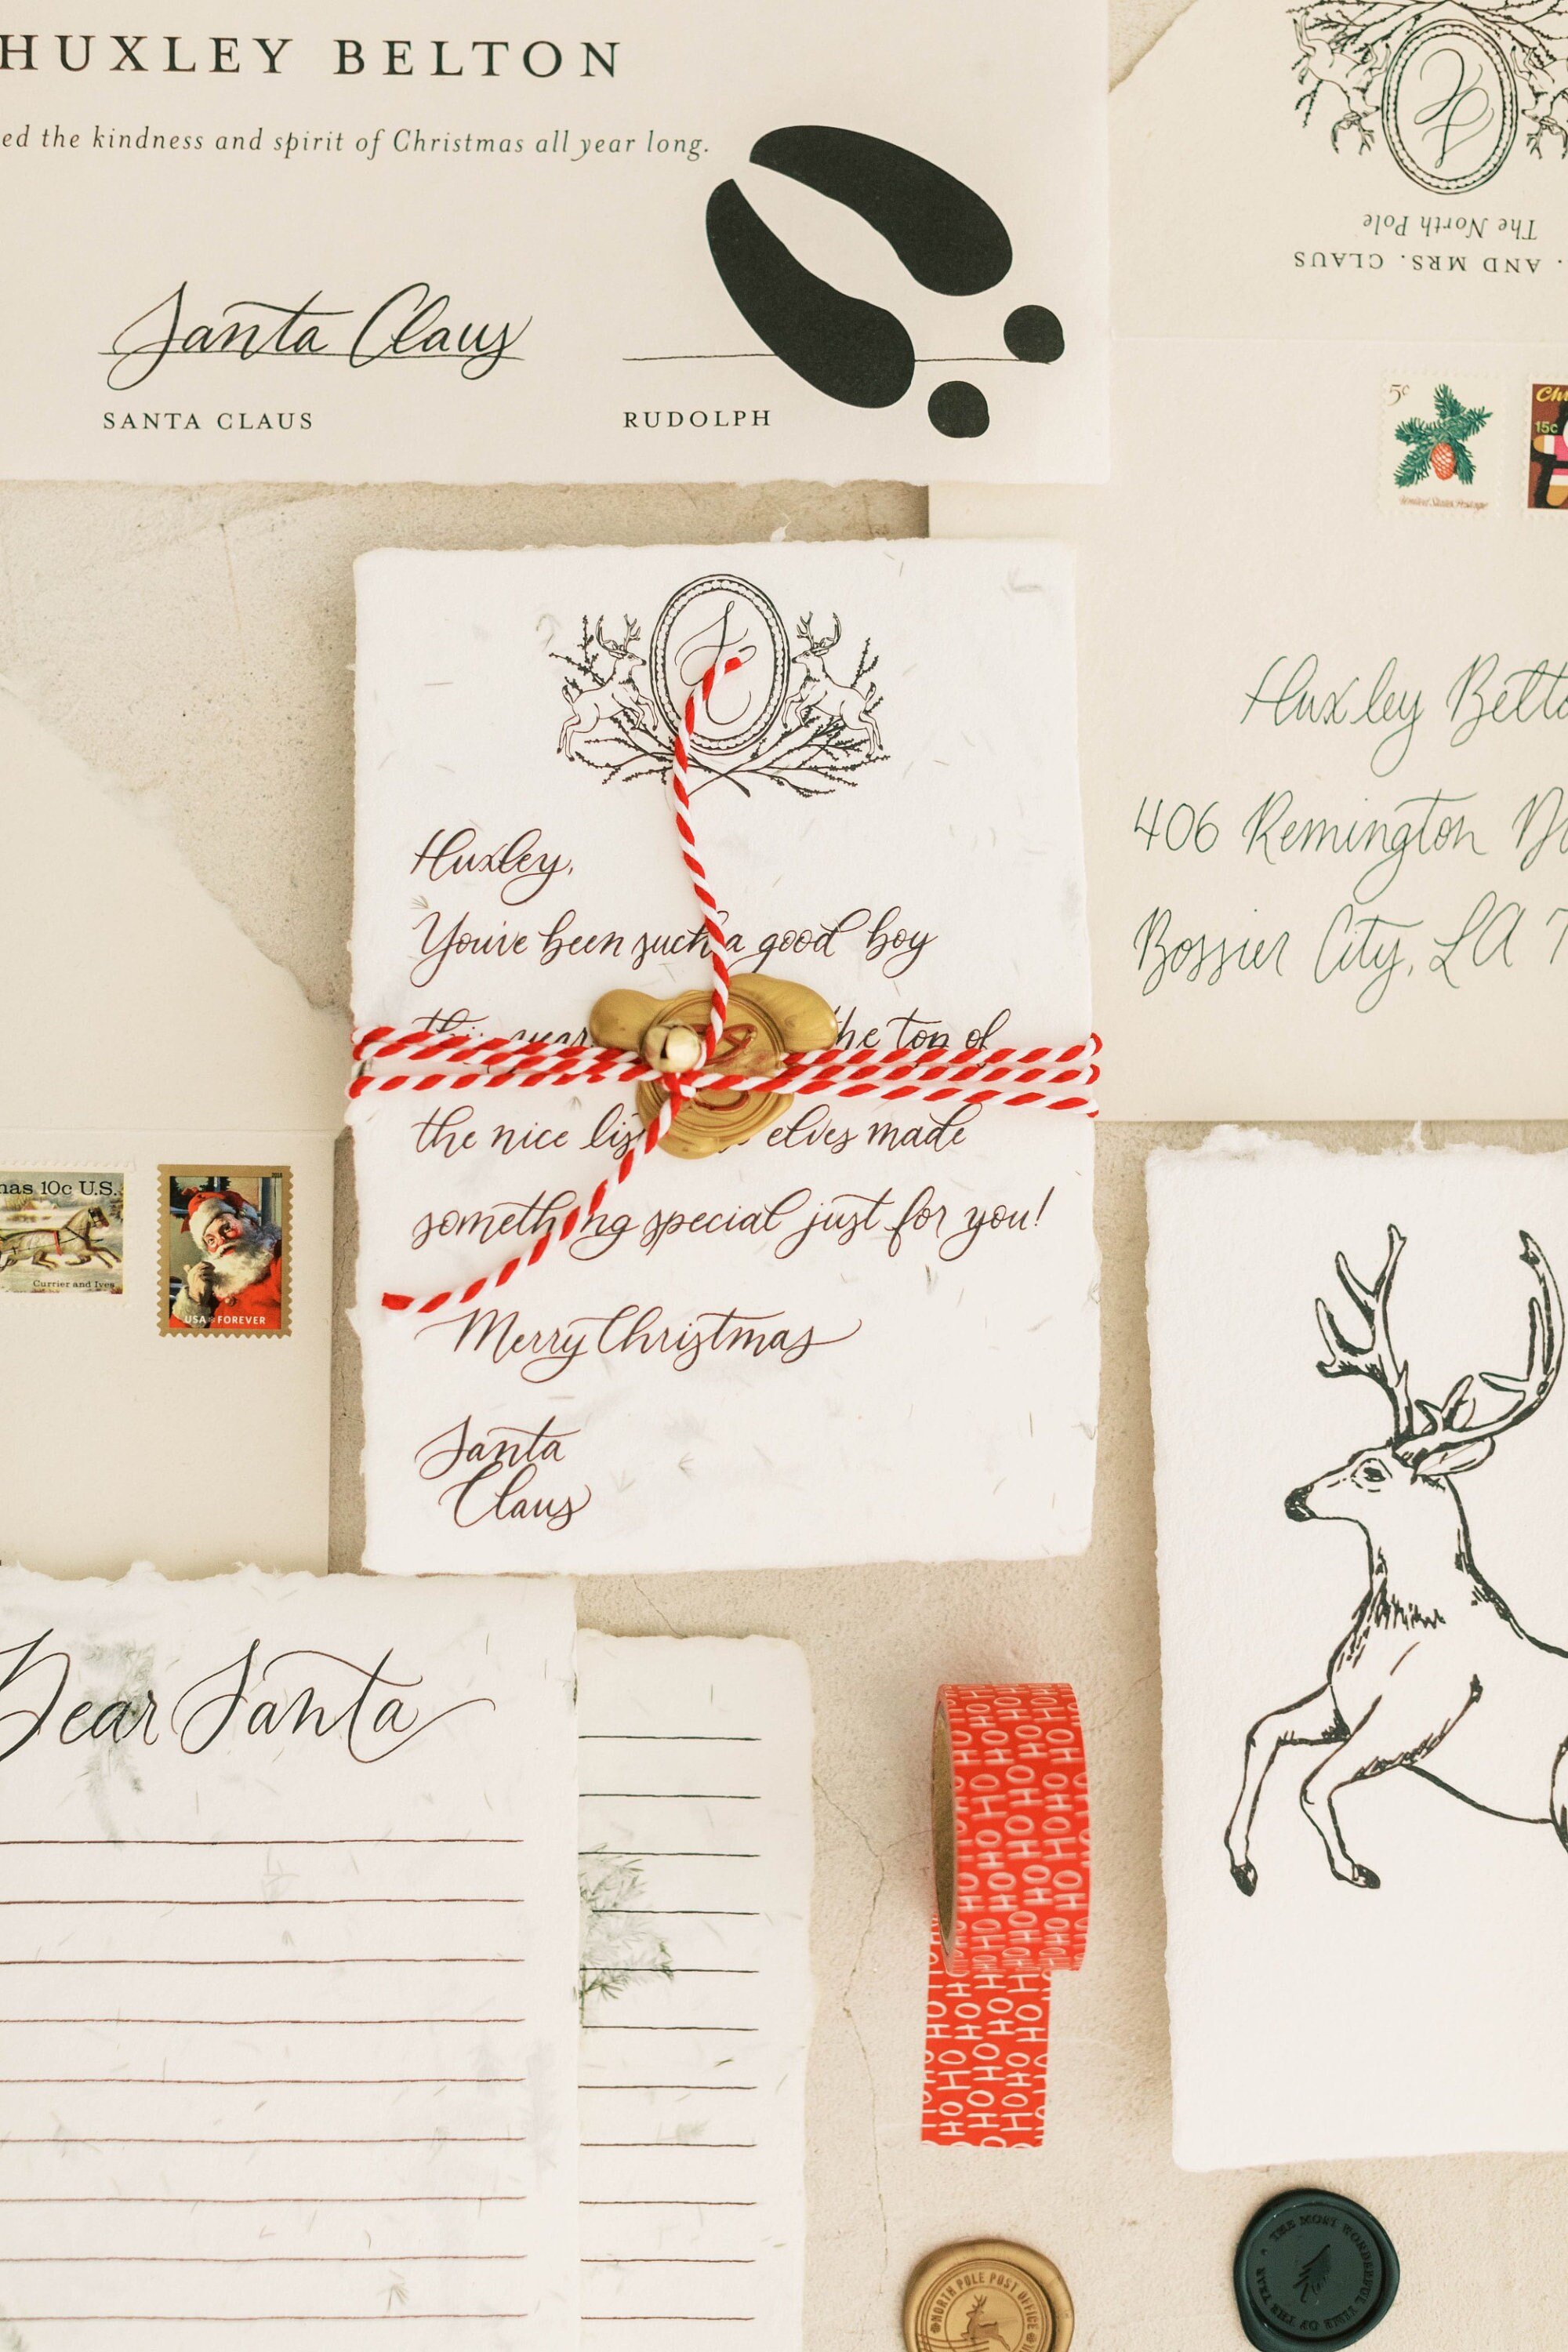 HUXLEY BELTON
ed the kindness and spirit of Christmas all year long.
Santa Claus
SANTA CLAUS
RUDOLPH
. AND MRS. CLAUS
The North Pole
5c
United States Postage
15c
Huxley Belto
406 Remington
Bossier City, LA 7
Huxley,
You've been such a good boy
this year the top of
the nice list elves made
something special just for you!
Merry Christmas
Santa
Claus
mas 10c U.S.
Currier and Ives
USA FOREVER
Dear Santa
HO HO HO HO
NORTH POLE POST OFFICE
THE MOST WONDERFUL TIME OF THE YEAR